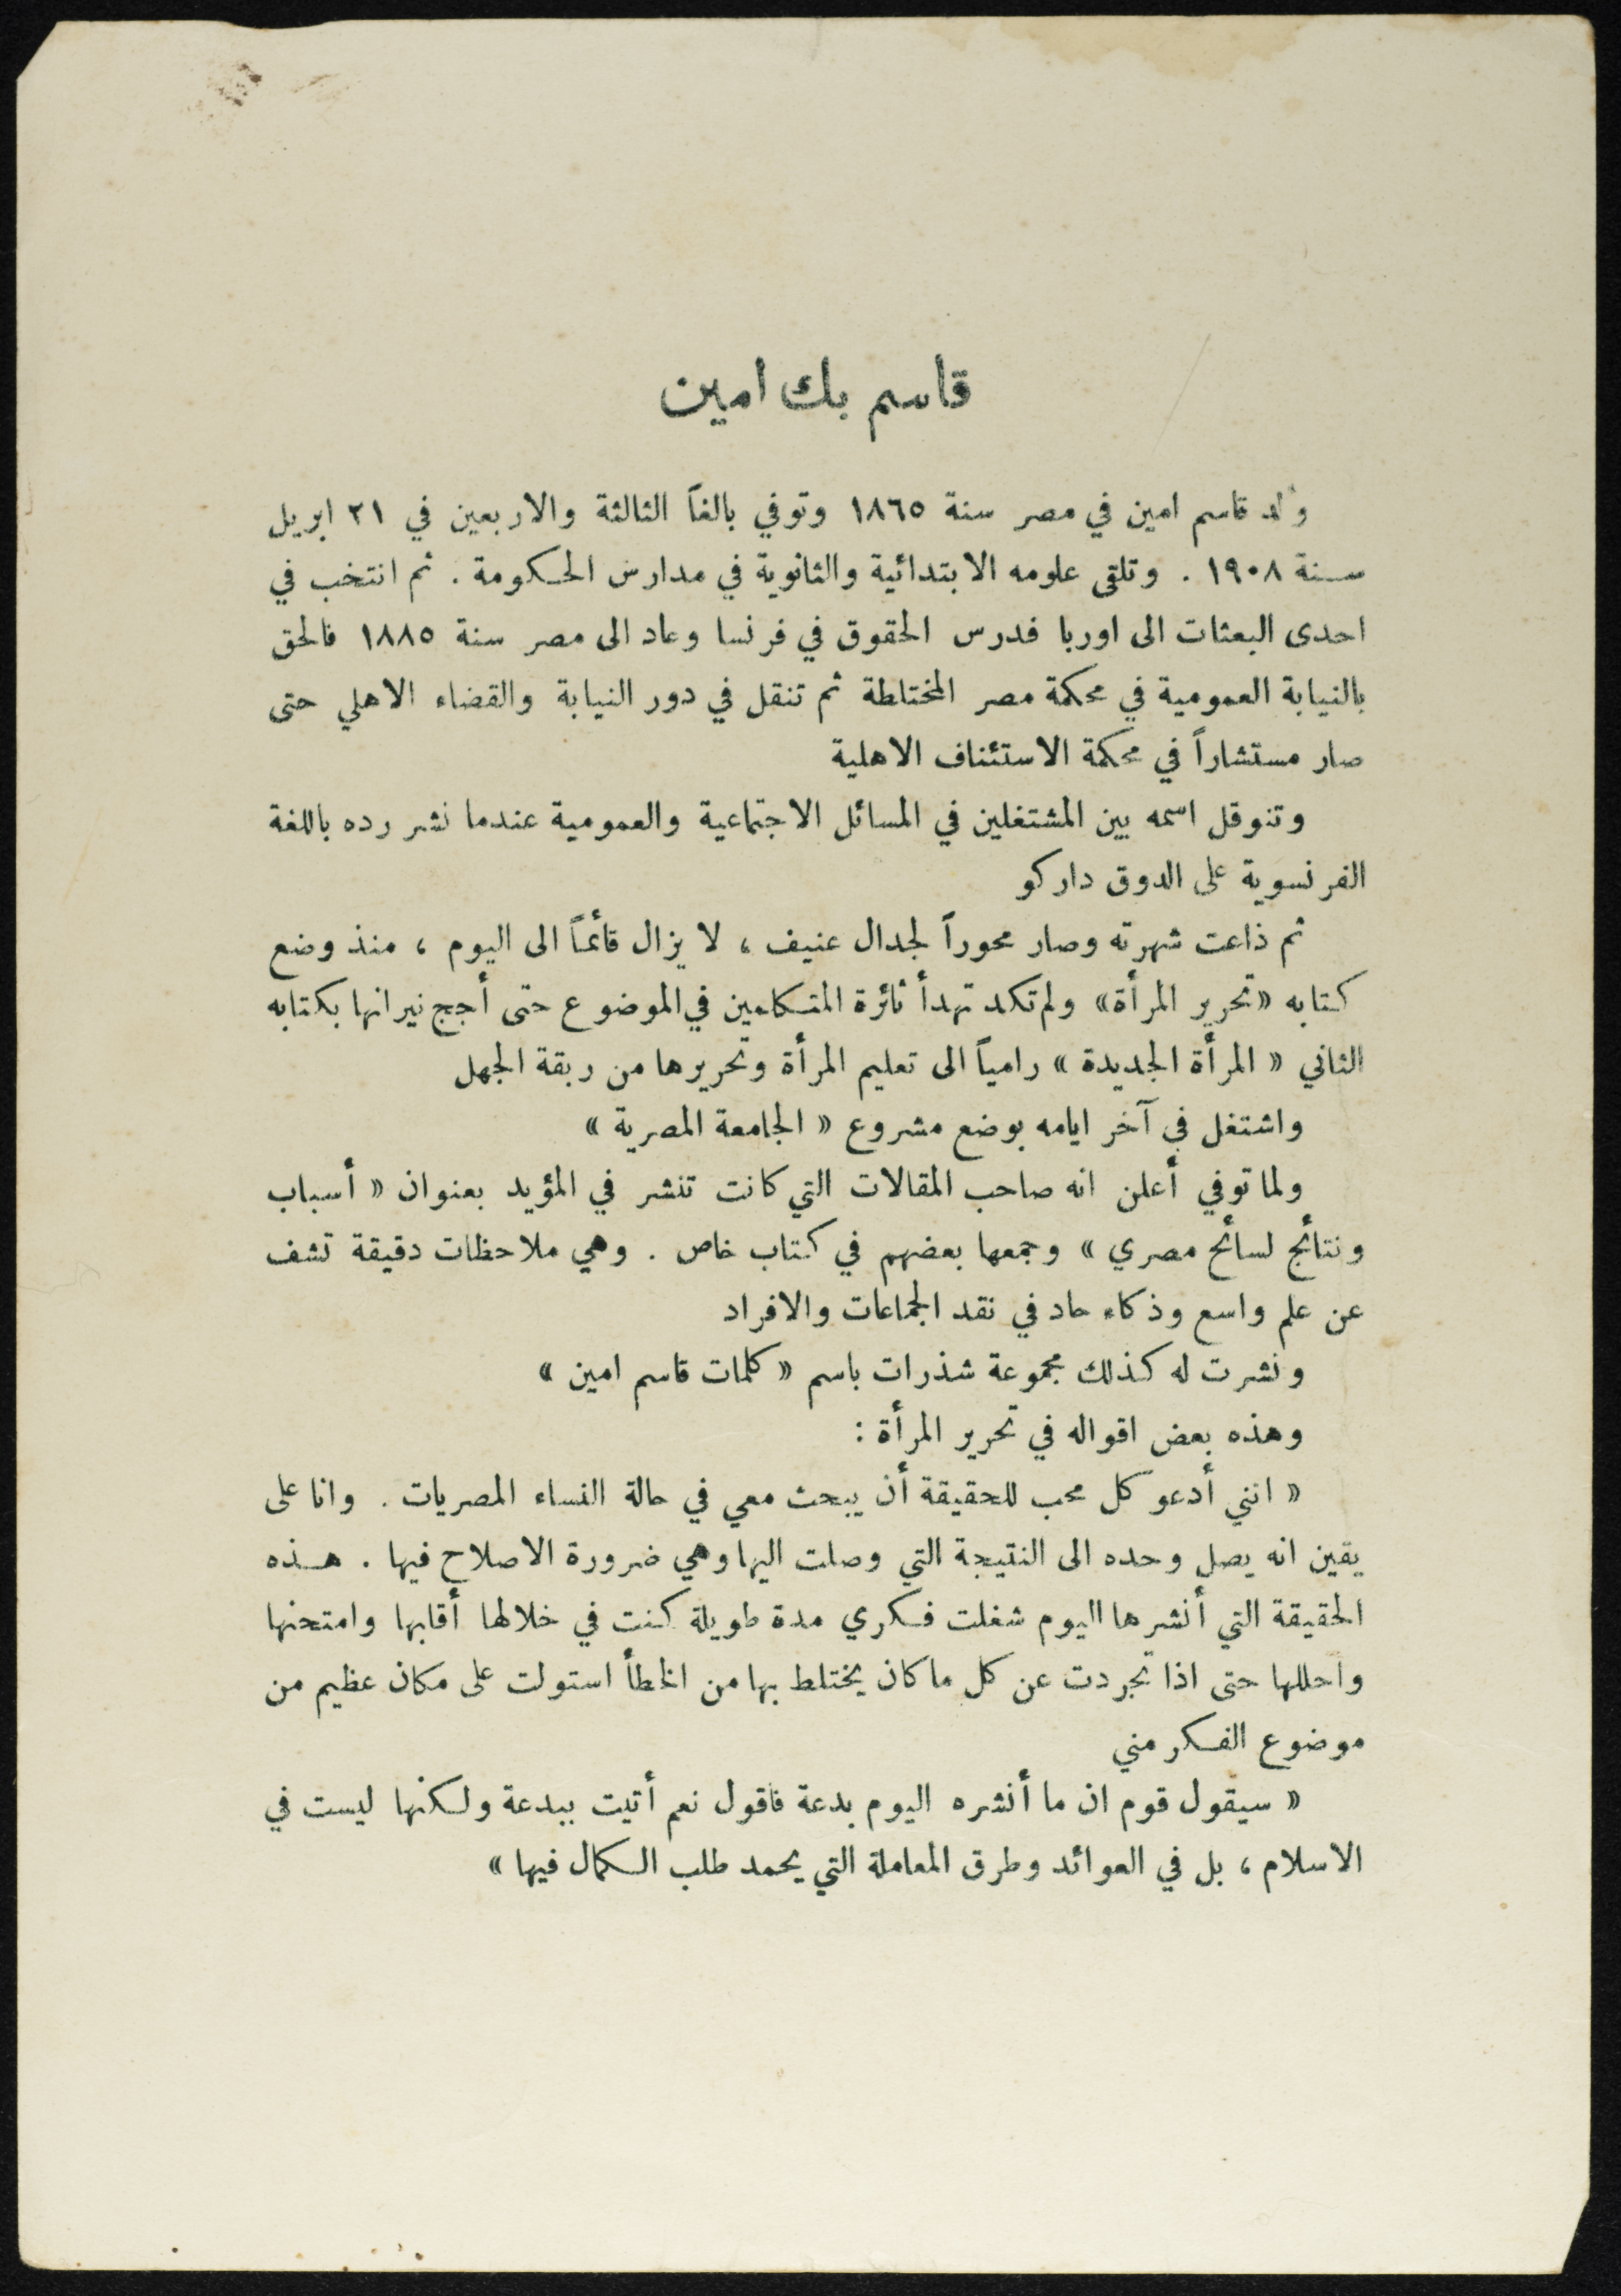 قاسم بك امين
وُلد قاسم امين في مصر سنة ١٨٦٥ وتوفي بالغاً الثالثة والاربعين في ٢١ ابريل
سنة ١٩٠٨ . وتلقى علومه الابتدائية والثانوية في مدارس الحكومة . ثم انتخب في
احدى البعثات الى اوربا فدرس الحقوق في فرنسا وعاد الى مصر سنة ١٨٨٥ فالحق
بالنيابة العمومية في محكمة مصر المختلطة ثم تنقل في دور النيابة والقضاء الاهلي حتى
صار مستشاراً في محكمة الاستئناف الاهلية
وتنوقل اسمه بين المشتغلين في المسائل الاجتماعية والعمومية عندما نشر رده باللغة
الفرنسوية على الدوق داركو
ثم ذاعت شهرته وصار محوراً لجدال عنيف ، لا يزال قائماً الى اليوم ، منذ وضع
كتابه «تحرير المرأة» ولم تكد تهدأ ثائرة المتكلمين في الموضوع حتى أجج نيرانها بكتابه
الثاني « المرأة الجديدة » رامياً الى تعليم المرأة وتحريرها من ربقة الجهل
واشتغل في آخر ايامه بوضع مشروع « الجامعة المصرية »
ولما توفي أعلن انه صاحب المقالات التي كانت تنشر في المؤيد بعنوان « أسباب
ونتائج لسائح مصري » وجمعها بعضهم في كتاب خاص . وهي ملاحظات دقيقة تشف
عن علم واسع وذكاء حاد في نقد الجماعات والافراد
ونشرت له كذلك مجموعة شذرات باسم « كلمات قاسم امين »
وهذه بعض اقواله في تحرير المرأة :
« انني أدعو كل محب للحقيقة أن يبحث معي في حالة النساء المصريات . وانا على
يقين انه يصل وحده الى النتيجة التي وصلت اليها وهي ضرورة الاصلاح فيها . هذه
الحقيقة التي أنشرها اليوم شغلت فكري مدة طويلة كنت في خلالها أقلبها وامتحنها
واحللها حتى اذا تجردت عن كل ما كان يختلط بها من الخطأ استولت على مكان عظيم من
موضوع الفكر مني
« سيقول قوم ان ما أنشره اليوم بدعة فاقول نعم أتيت ببدعة ولكنها ليست في
الاسلام ، بل في العوائد وطرق المعاملة التي يحمد طلب الكمال فيها »